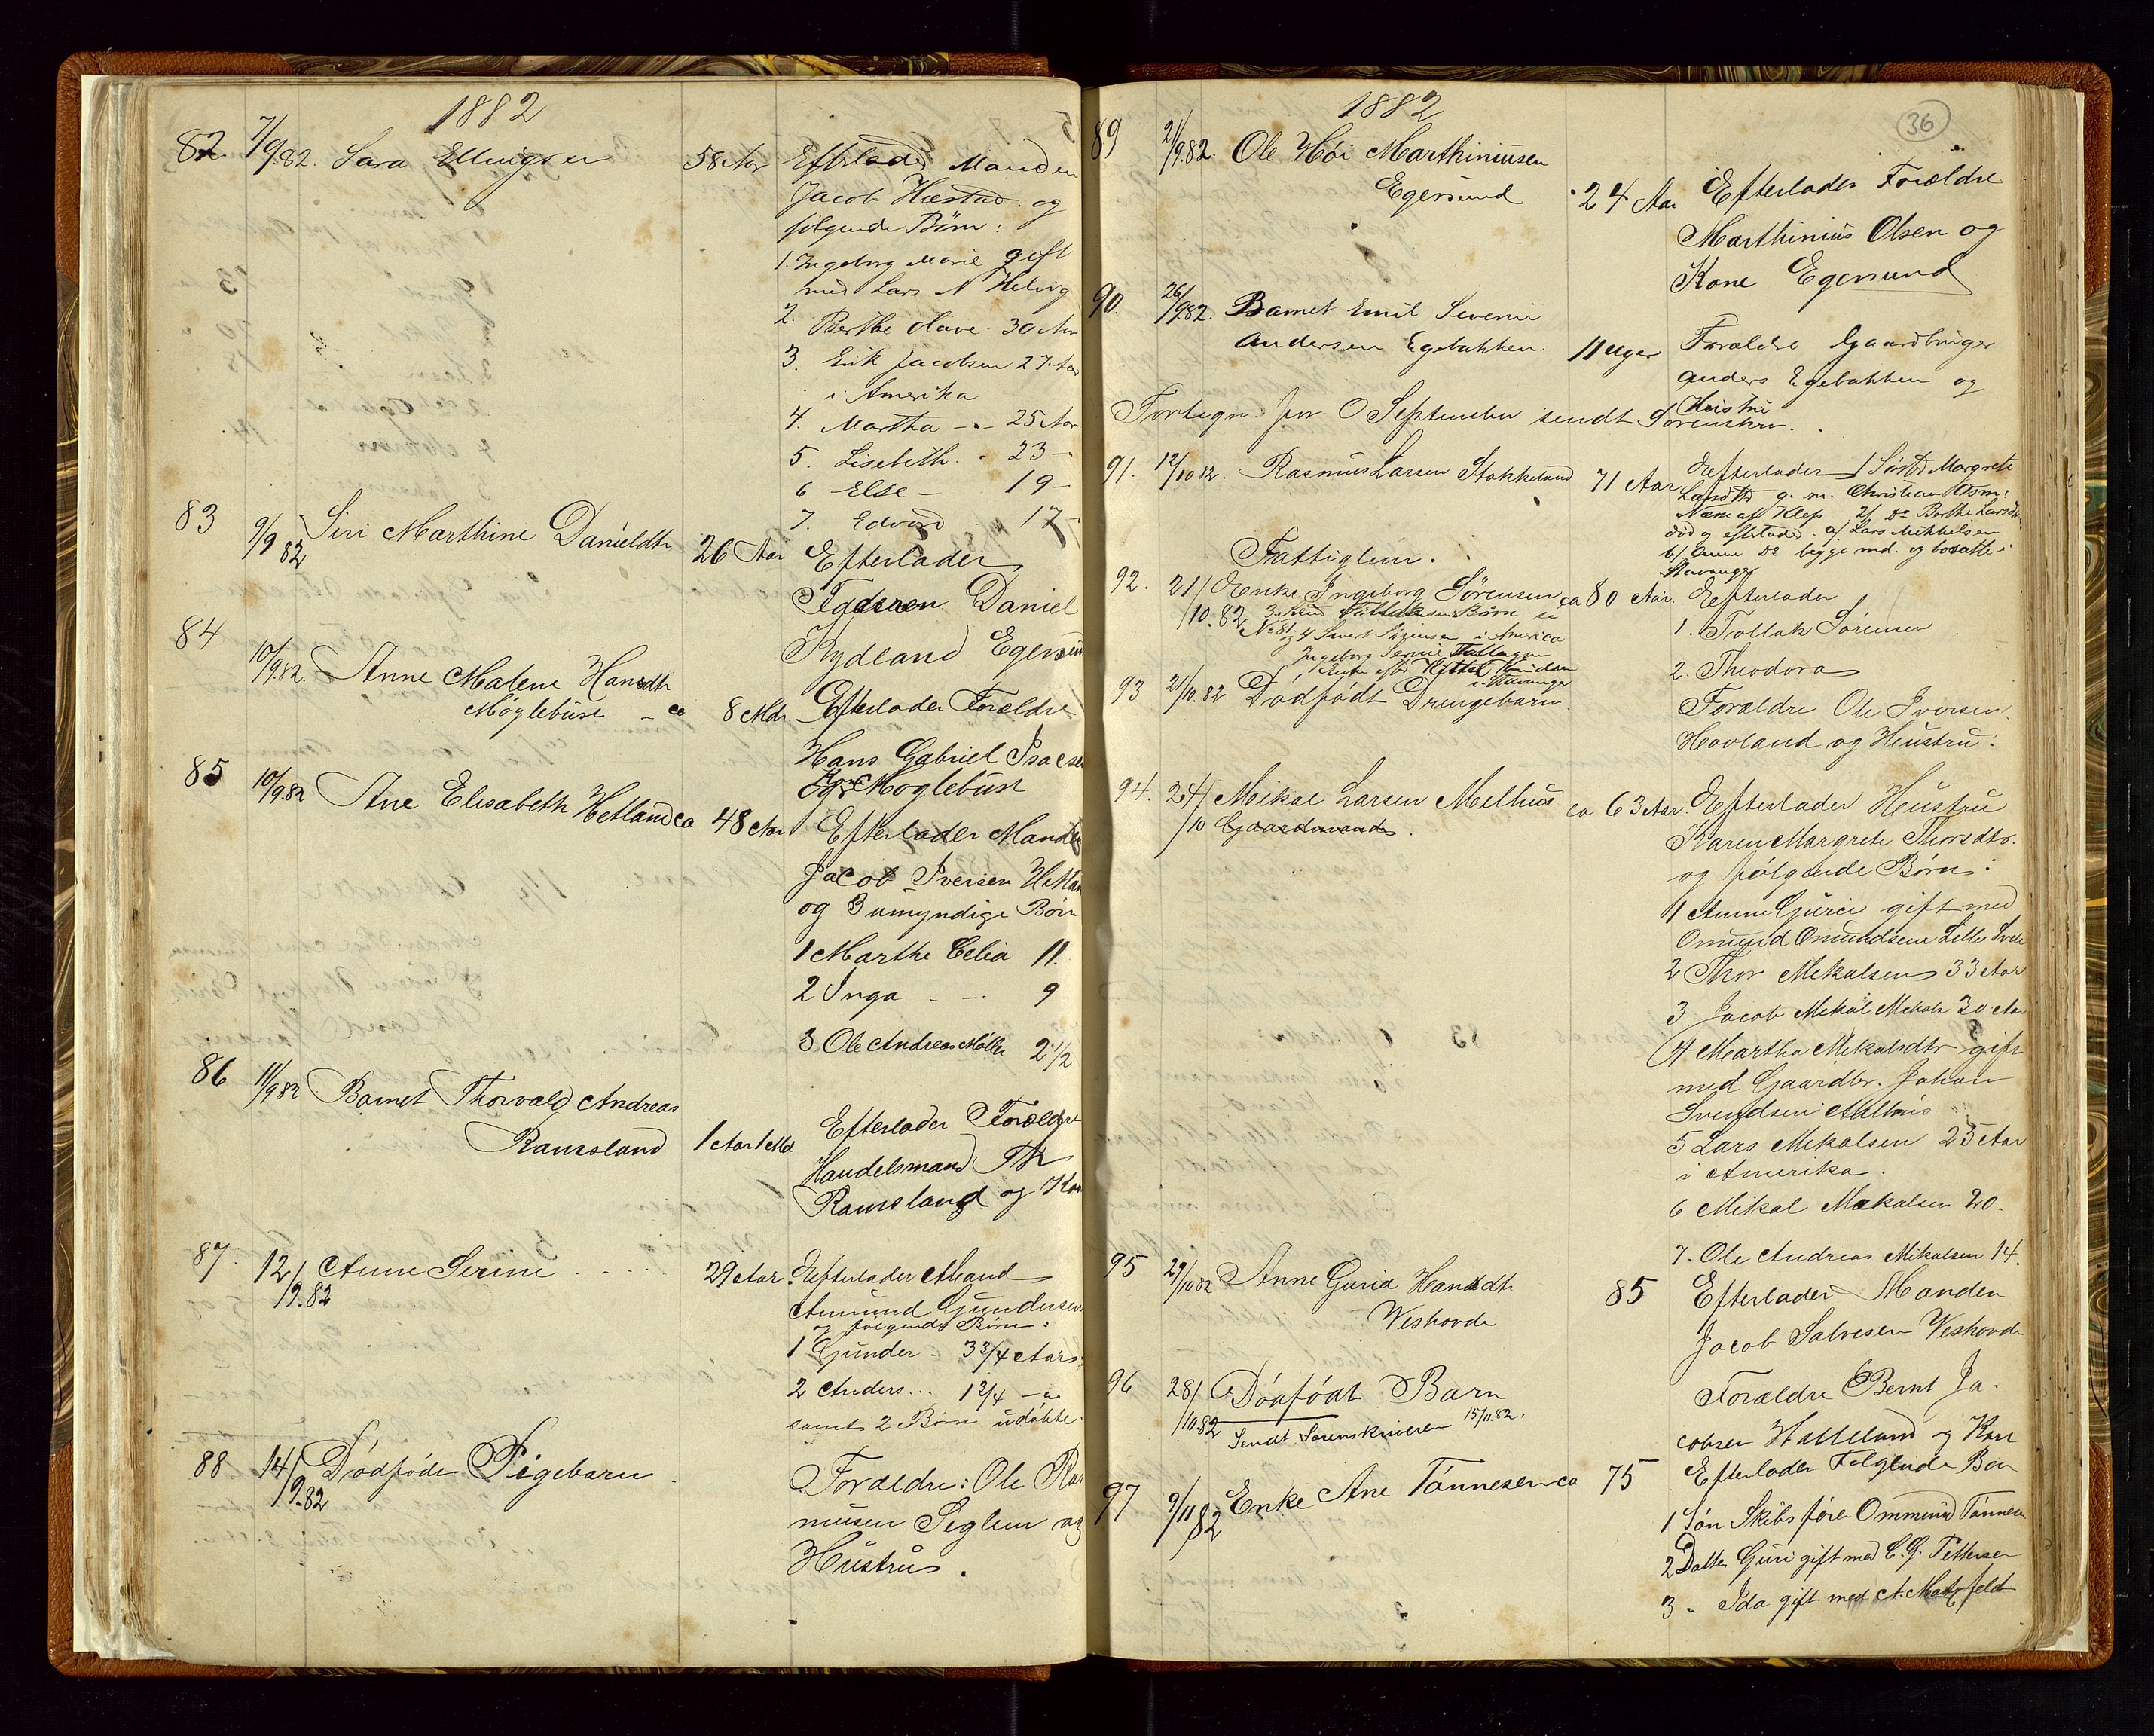 1882
82 7/9.82. Sara Ellingsen 58 Aar Efterlader Manden
Jacob Hæstad og
følgende Børn:
1. Ingeborg Marie gift
med Lars N Helvig
2. Berthe Olave 30 Aar
3. Erik Jacobsen 27 Aar
i Amerika
4. Martha - " - 25 Aar
5. Lisebeth. - 23 -
6 Else - 19 -
7. Edvard - 17 -
83 9/9 82 Siri Marthine Danieldtr 26 Aar Efterlader
Faderen Daniel
Rydland Egersund
84 10/9.82. Anne Malene Hansdtr
Møglebust - ca 8 Mdr Efterlader Forældre
Hans Gabriel Isacsen
og Kone Møglebust
85 10/9.82 Ane Elisabeth Hetland ca 48 Aar Efterlader Manden
Jacob Iversen Hetland
og 3 umyndige Børn
1 Marthe Celia 11.
2 Inga - -. 9
3 Ole Andreas Møller 2 1/2
86 11/9 82 Barnet Thorvald Andreas
Ramsland 1 Aar 1 Md Efterlader Forældre
Handelsmand Th
Ramsland og Kone
87. 12/9.82 Anne Serine 29 Aar. Efterlader Mand
Amund Gundersen
og følgende Børn:
1 Gunder - 3 3/4 Aars
2 Anders ... 1 3/4 - "
samt 2 Børn udøbte
88 14/9.82 Dødføde Pigebarn. Forældre: Ole Ras
musen Seglem og
Hustru.
1882
36
89 21/9.82. Ole Høi Marthiniusen
Egersund 24 Aar Efterlader Forældre
Marthinius Olsen og
Kone Egersund
90. 26/9 82. Barnet Emil Severin
Andersen Egebakken. 11 Uger Forældre Gaardbruger
Anders Egebakken og
Hustru
Fortegn. for September sendt Sorenskrv.
91. 12/10 82. Rasmus Larsen Stokkeland 71 Aar Efterlader 1 Søster Margrete
Larsdtr g. m. Christian Osm:
Næse af Klep 2/ Do Berthe Larsdtr
død og efterlader a/ Lars Mikkelsen
b/ Anne Do begge md. og bosatte i
Stavanger
Fattiglem.
92. 21/10.82 Enke Ingeborg Sørensen ca 80 Aar. Efterlader
1. Tollak Sørensen
2. Theodora
No 81. og 4 Sivert i America
Ingeborg Serine
i Stavanger
93 21/10.82 Dødfødt Drengebarn. Forældre Ole Iversen
Hovland og Hustru.
94. 24/10 Mikal Larsen Melhus ca 63 Aar. Efterlader Hustru
Gaardmand. Karen Margrete Thorsdtr.
og følgende Børn:
1 Anne Gurie gift med
Omund Omundsen Lille Svele
2 Thor Mikalsen 33 Aar
3 Jacob Mikal Mikals 30 Aar
4 Martha Mikalsdtr gift
med Gaardbr. Johan
Svendsen Melhus
5 Lars Mikalsen 25 Aar
i Amerika.
6 Mikal Mikalsen 20.
7. Ole Andreas Mikalsen 14.
95 27/10 82 Anne Guria Hansdtr
Veshovde 85 Efterlader Manden
Jacob Salvesen Veshovde
96 28/10 82 Dødfødt Barn Forældre Bernt Ja-
cobsen Helleland og Kone
Sendt Sorenskriveren 15/11.82.
97 9/11 82 Enke Ane Tønnesen ca 75 Efterlader Følgende Børn
1 Søn Skibsfører Ommund Tønnesen
2 Datter Guri gift med C. G. Pettersen
3 " Ida gift med A. Maatzfeldt